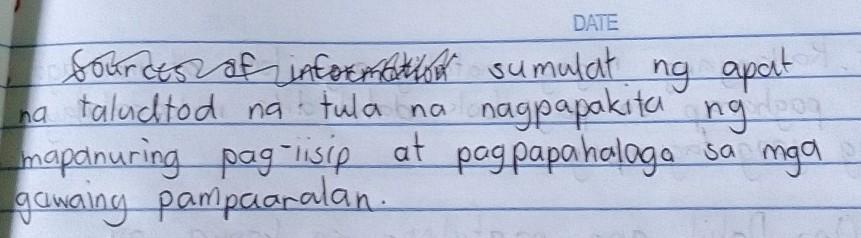 DATE
Sources of information sumulat ng apat
na taludtod na tula na nagpapakita ng
mapanuring pag-iisip at pagpapahalaga sa mga
gawaing pampaaralan.